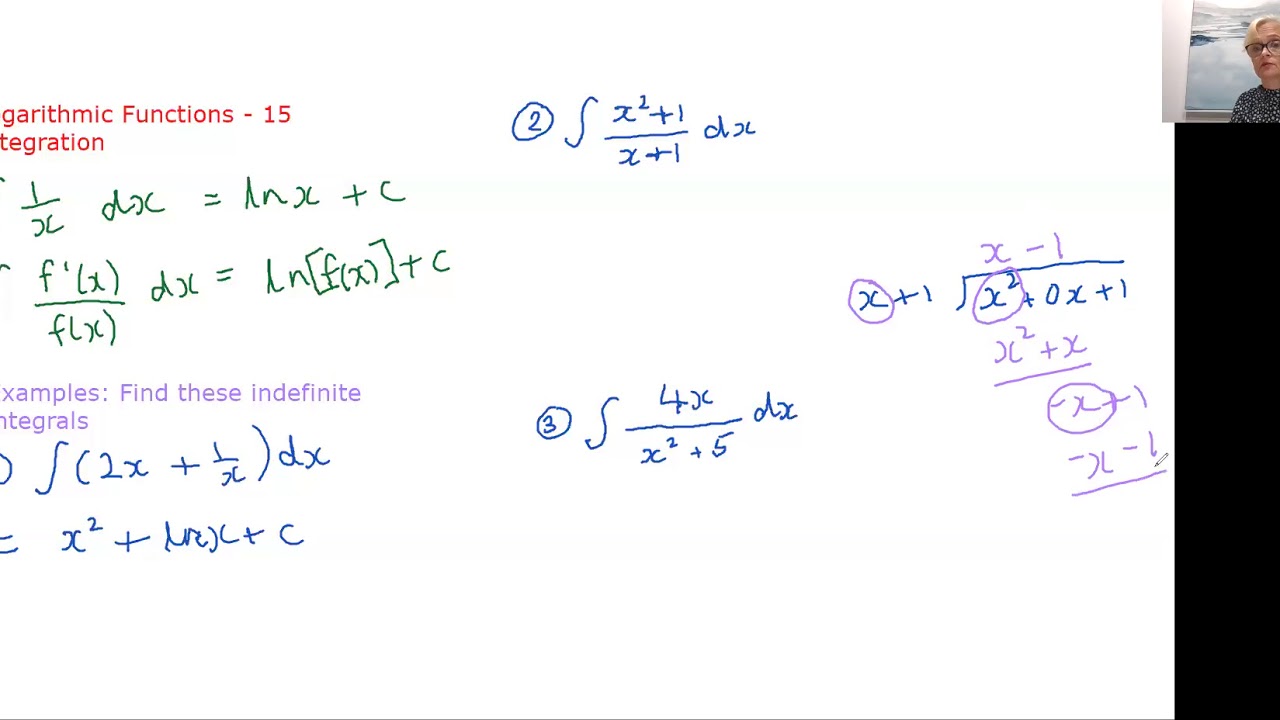 garithmic Functions - 15
tegration
1/x dx = ln x + c
f'(x)/f(x) dx = ln[f(x)] + c
xamples: Find these indefinite
ntegrals
∫(2x + 1/x)dx
= x² + ln x + c
② ∫ x²+1/x+1 dx
③ ∫ 4x/x²+5 dx
x - 1
x + 1 √x² + 0x + 1
x² + x
-x + 1
-x - 1